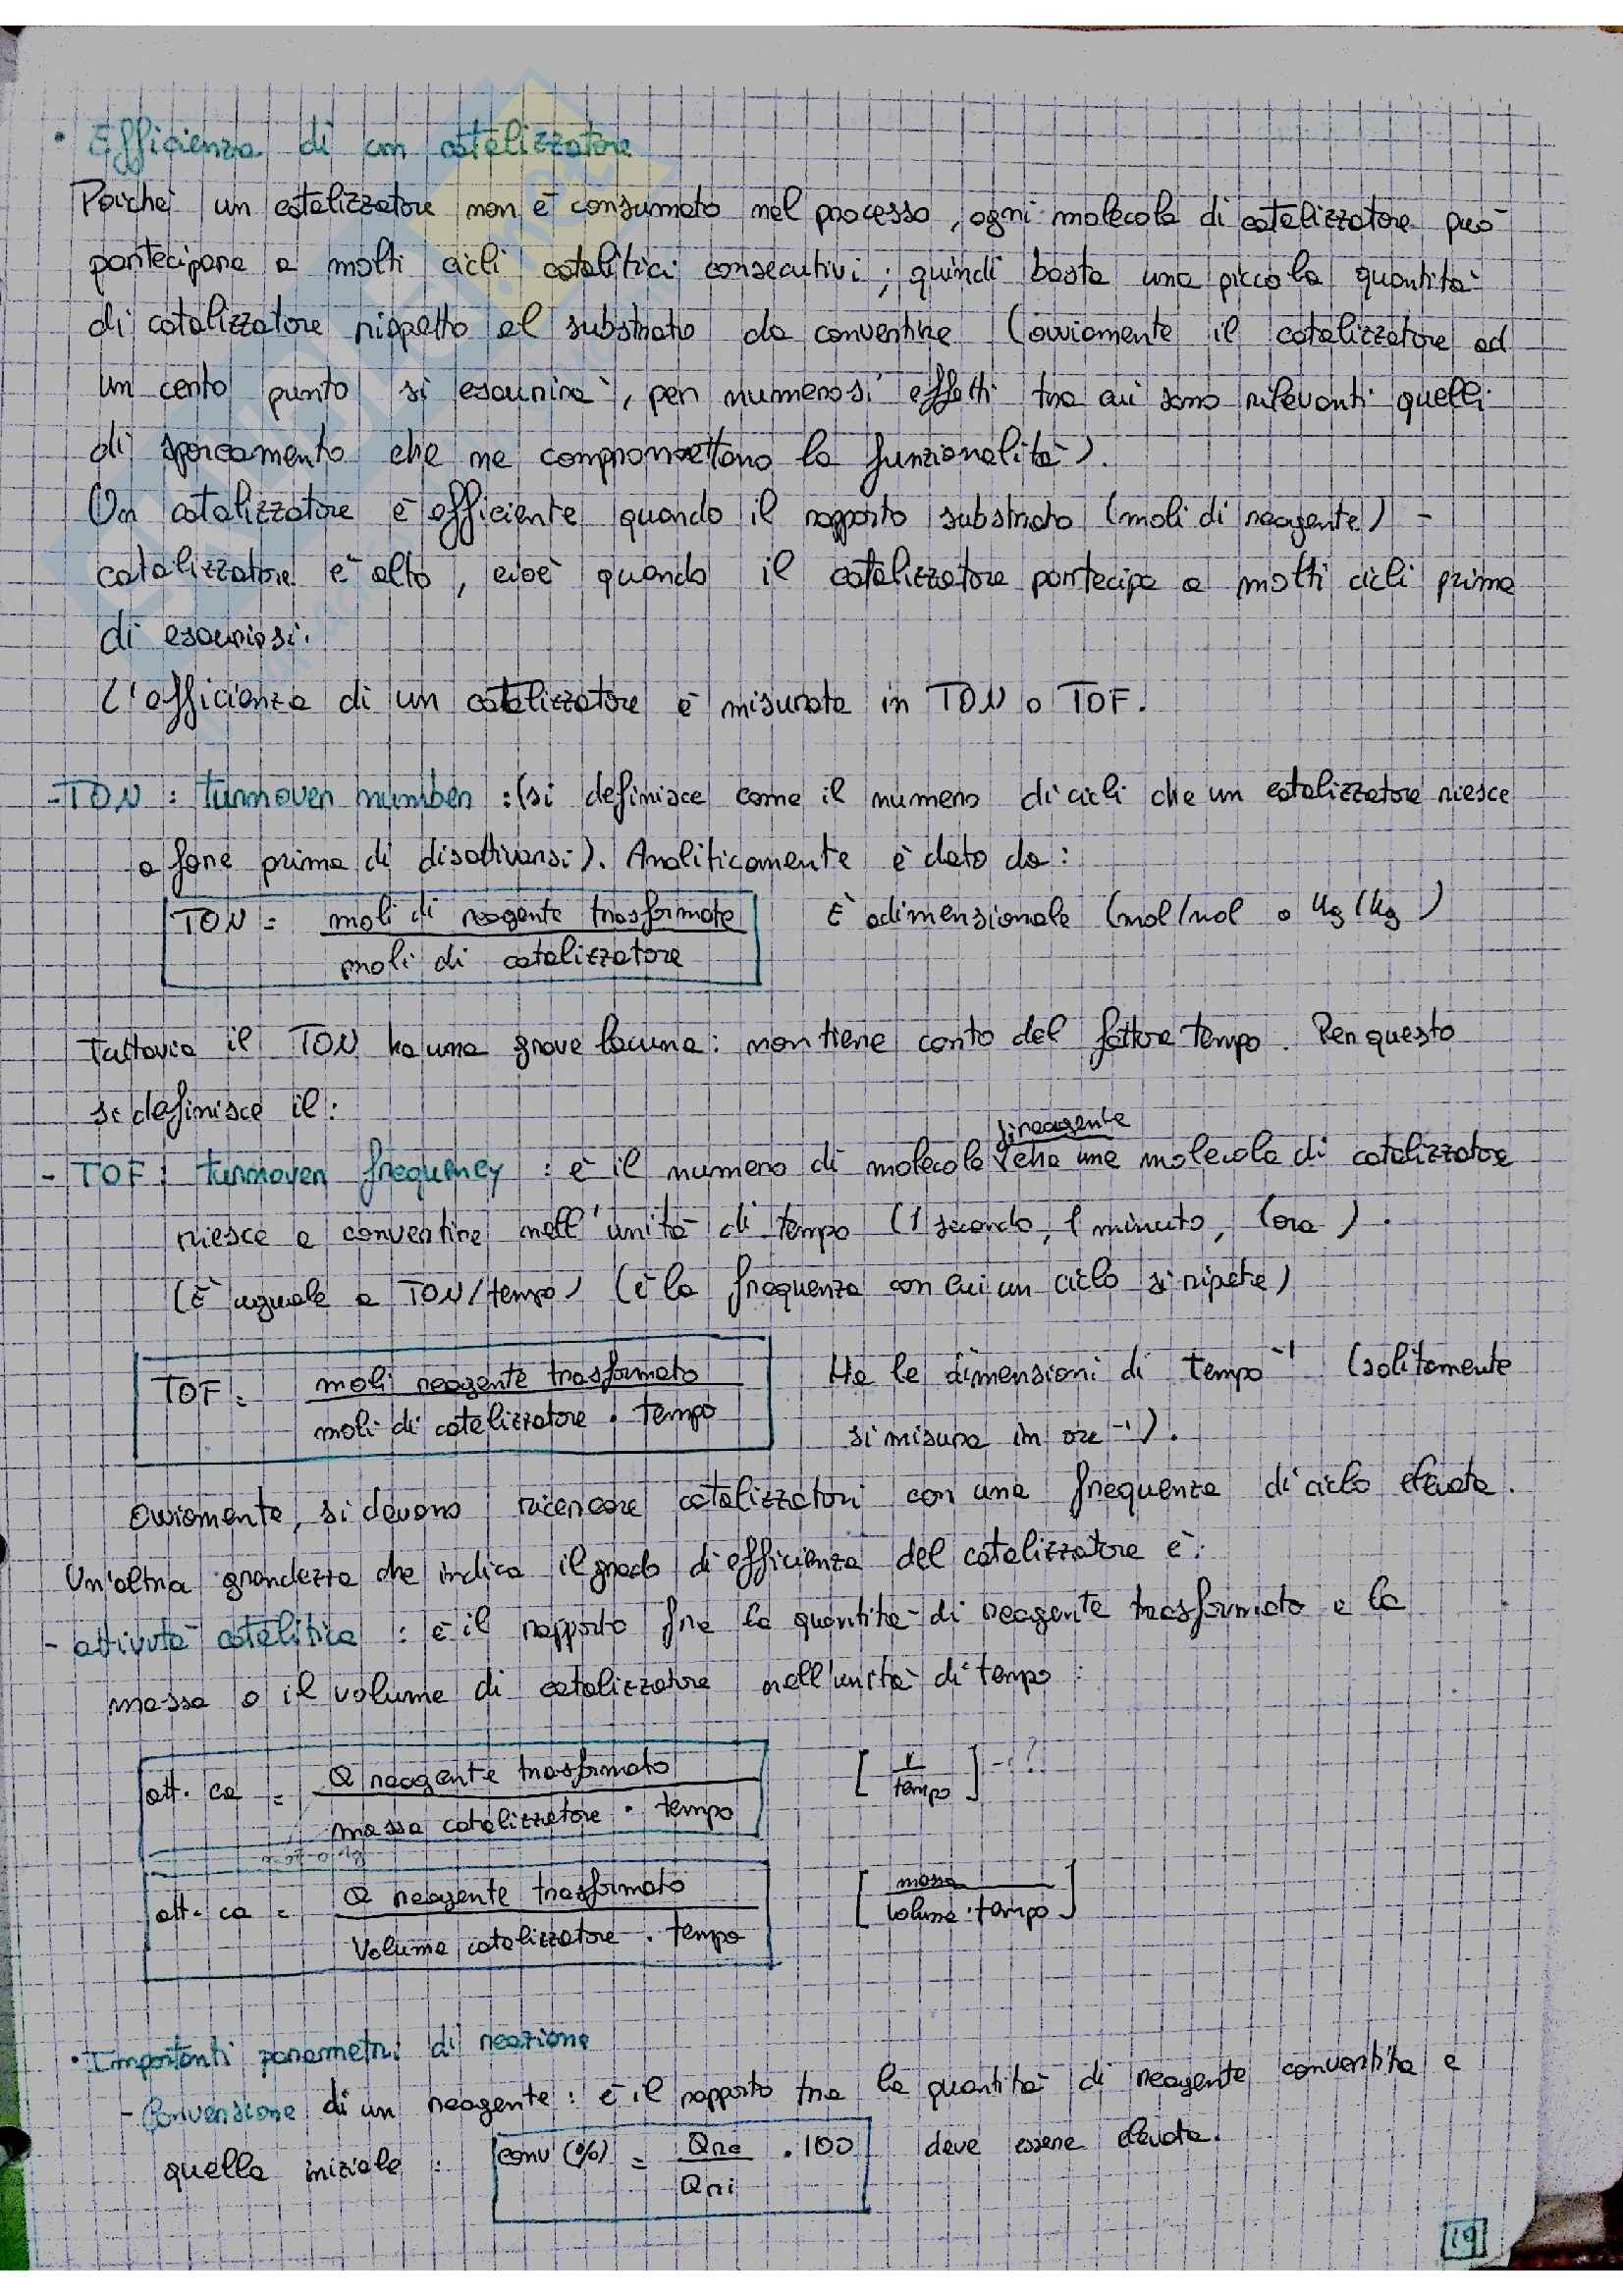 • Efficienza di un catalizzatore
Poiché un catalizzatore non è consumato nel processo, ogni molecola di catalizzatore può
partecipare a molti cicli catalitici consecutivi; quindi basta una piccola quantità
di catalizzatore rispetto al substrato da convertire (ovviamente il catalizzatore ad
un certo punto si esaurirà, per numerosi effetti tra cui sono rilevanti quelli
di sporcamento che ne compromettono la funzionalità).
Un catalizzatore è efficiente quando il rapporto substrato (moli di reagente) -
catalizzatore è alto, cioè quando il catalizzatore partecipa a molti cicli prima
di esaurirsi.
L'efficienza di un catalizzatore è misurata in TON o TOF.
- TON : turnover number : (si definisce come il numero di cicli che un catalizzatore riesce
a fare prima di disattivarsi). Analiticamente è dato da:
TON = moli di reagente trasformate / moli di catalizzatore È adimensionale (mol/mol o Kg/Kg)
Tuttavia il TON ha una grave lacuna: non tiene conto del fattore tempo. Per questo
si definisce il:
di reagente
- TOF: turnover frequency : è il numero di molecole che una molecola di catalizzatore
riesce a convertire nell'unità di tempo (1 secondo, 1 minuto, 1 ora).
(È uguale a TON/tempo) (è la frequenza con cui un ciclo si ripete)
TOF = moli reagente trasformato / moli di catalizzatore · tempo Ha le dimensioni di tempo⁻¹ (solitamente
si misura in ore⁻¹).
Ovviamente, si devono ricercare catalizzatori con una frequenza di ciclo elevata.
Un'altra grandezza che indica il grado di efficienza del catalizzatore è:
- attività catalitica : è il rapporto fra la quantità di reagente trasformato e la
massa o il volume di catalizzatore nell'unità di tempo :
att. ca = Q reagente trasformato / massa catalizzatore · tempo [1 / tempo]
att. ca = Q reagente trasformato / Volume catalizzatore · tempo [massa / volume · tempo]
• Importanti parametri di reazione
- Conversione di un reagente: è il rapporto tra la quantità di reagente convertita e
quella iniziale : conv (%) = Qrc / Qri · 100 deve essere elevata.
19